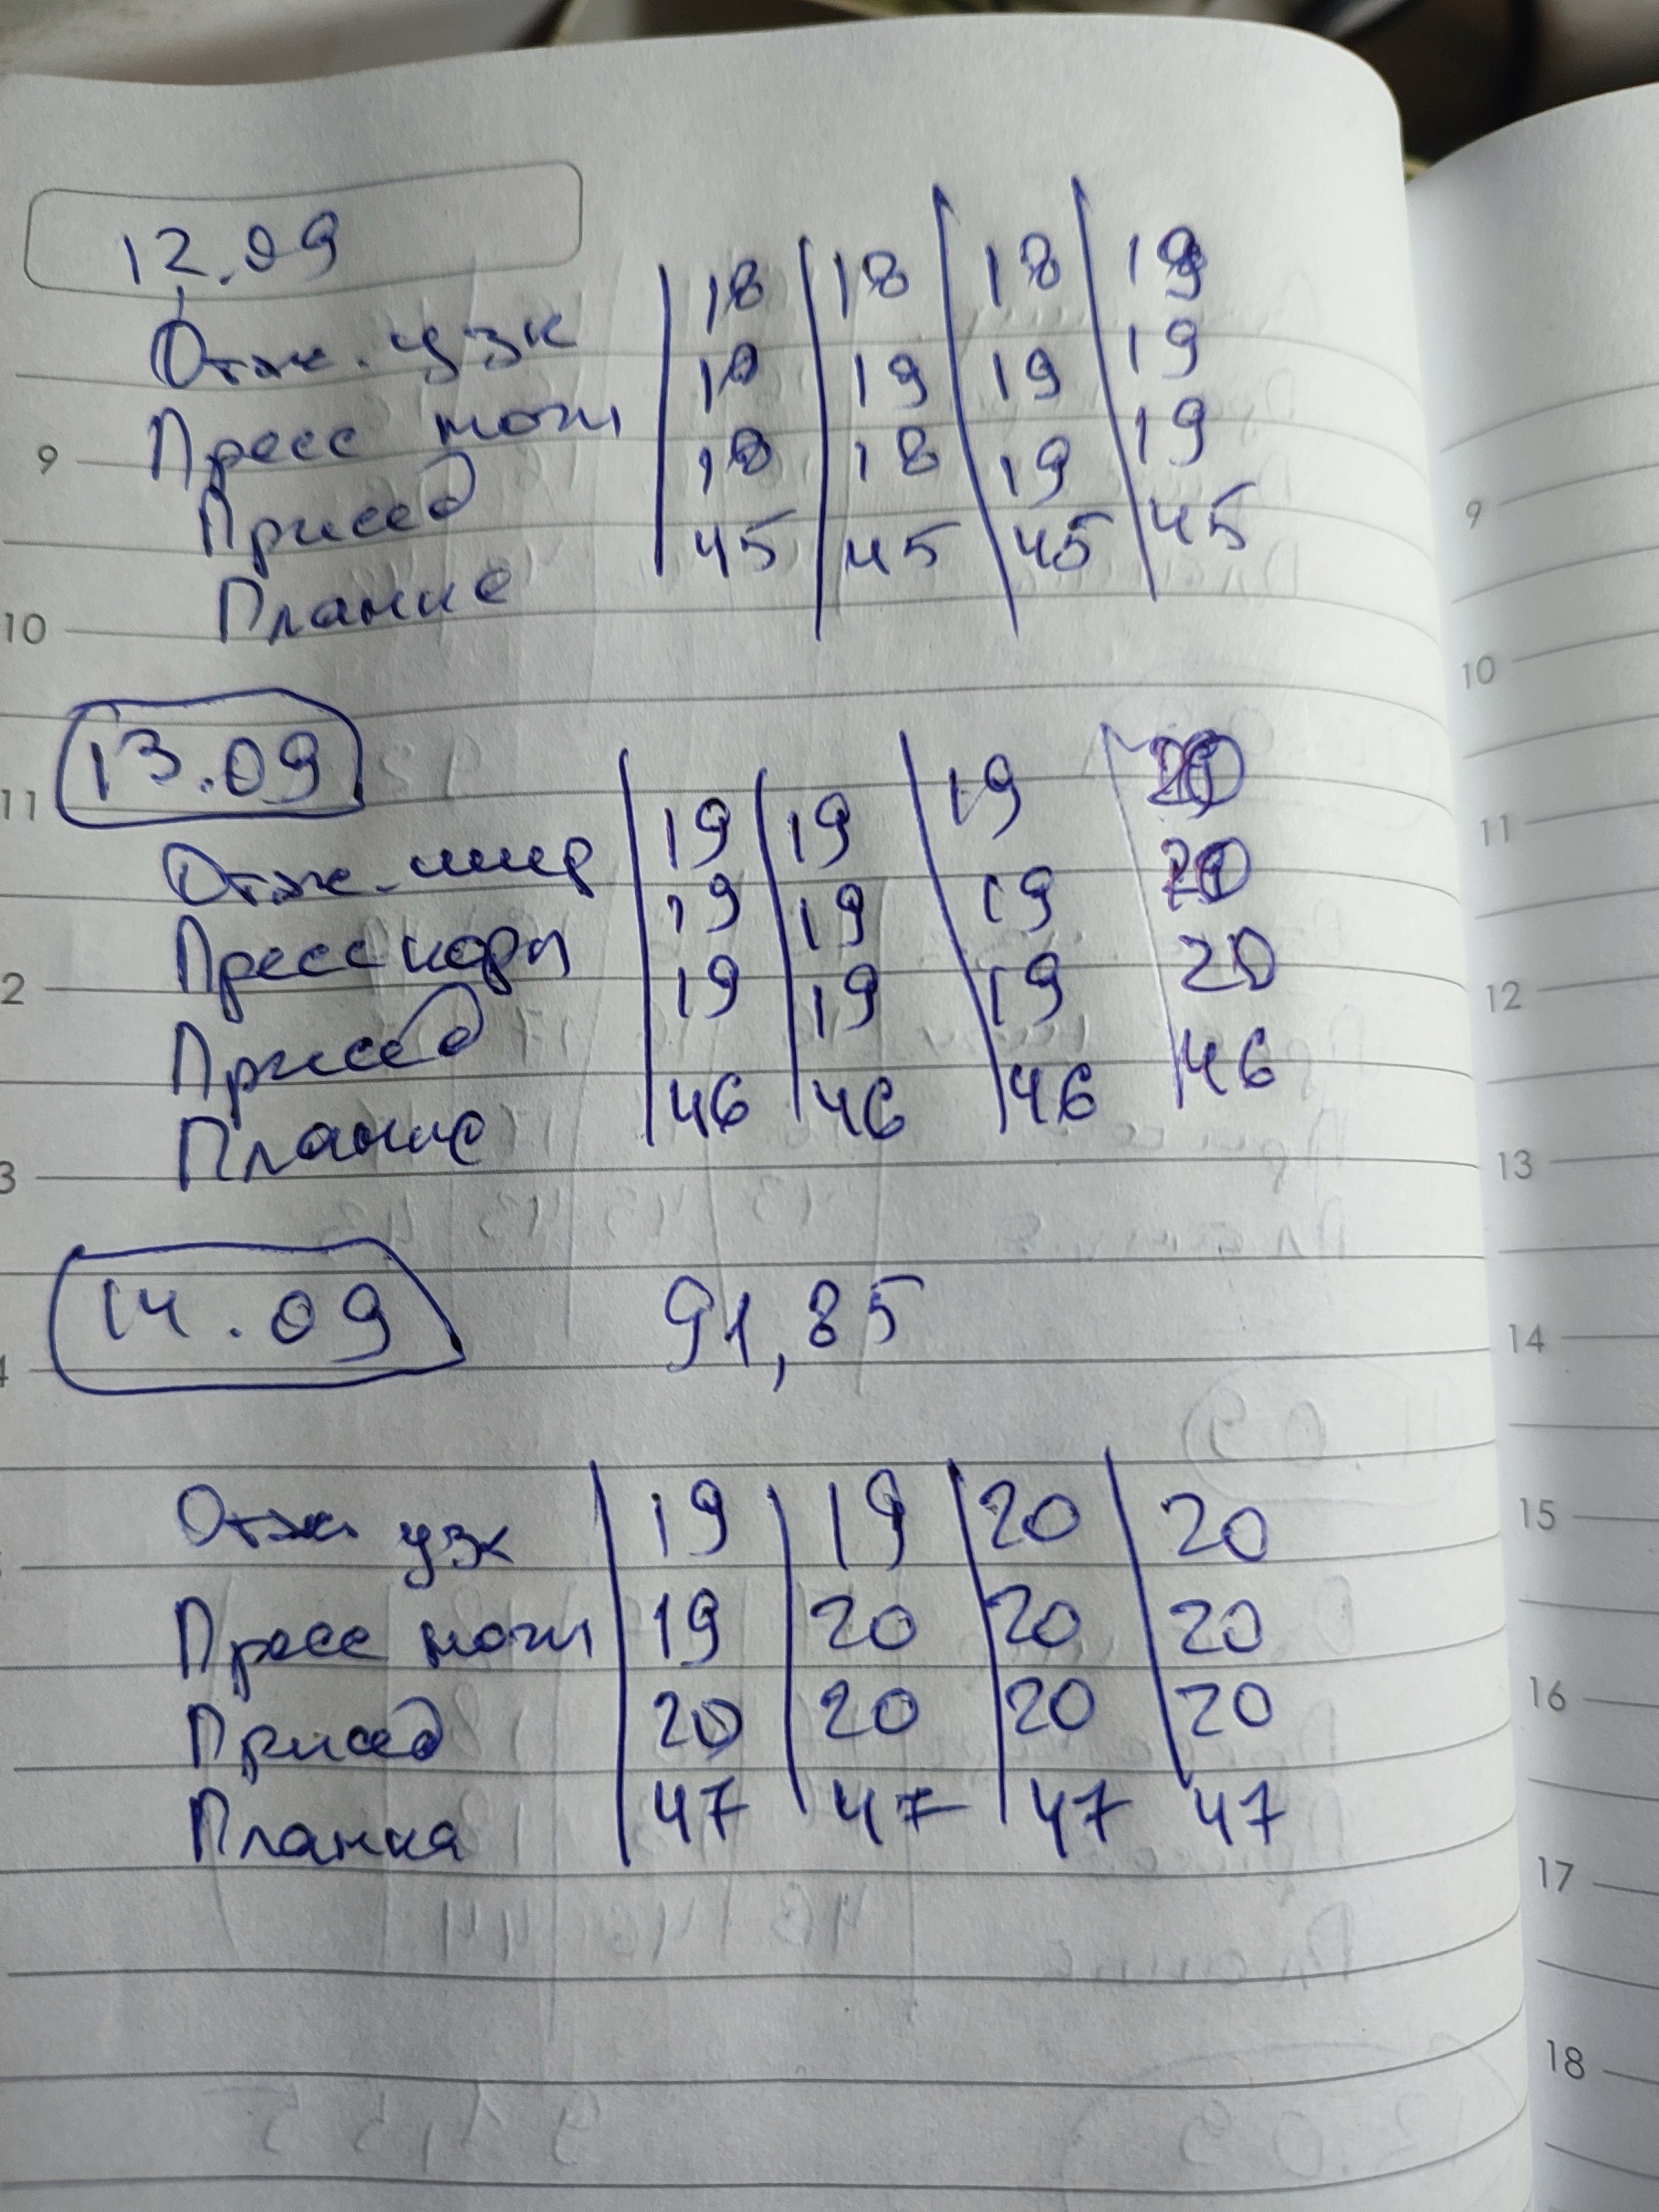 12.09
Отж. узк 18 18 18 19
Пресс ноги 19 19 19
Присед 18 18 19 19
Планке 45 45 45 45
13.09
Отж. шир 19 19 19 20
Пресс корп 19 19 19 20
Присед 19 19 19 20
Планке 46 46 46 46
14.09 91,85
Отж узк 19 19 20 20
Пресс ноги 19 20 20 20
Присед 20 20 20 20
Планка 47 47 47 47
9
10
11
12
13
14
15
16
17
18